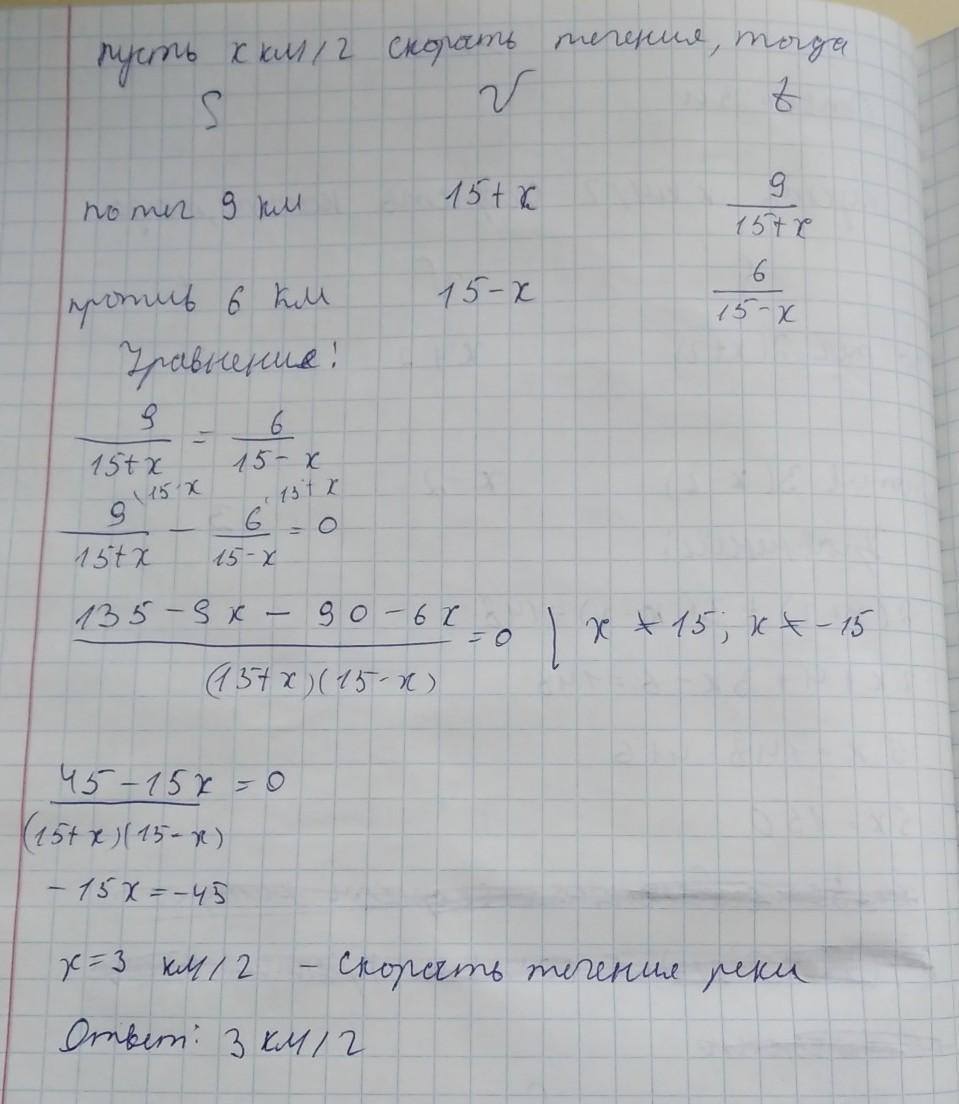 пусть x км/г скорать течения, тогда
S V t
по теч 9 км 15+x 9/(15+x)
против 6 км 15-x 6/(15-x)
Уравнение!
9/(15+x) = 6/(15-x)
9\15-x/(15+x) - 6\15+x/(15-x) = 0
(135-9x-90-6x)/((15+x)(15-x)) = 0 | x ≠ 15; x ≠ -15
(45-15x)/((15+x)(15-x)) = 0
-15x = -45
x=3 км/г - скорать течения реки
Ответ: 3 км/г